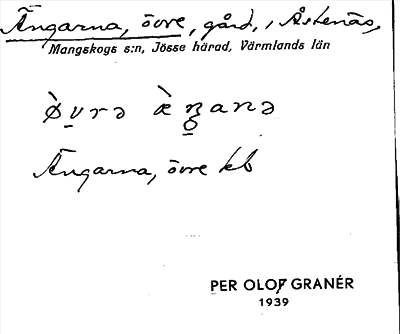 Ängarna, övre, gård, i Åstenäs,
Mangskogs s:n, Jösse härad, Värmlands län
Ängarna, övre kb
PER OLOF GRANÉR
1939